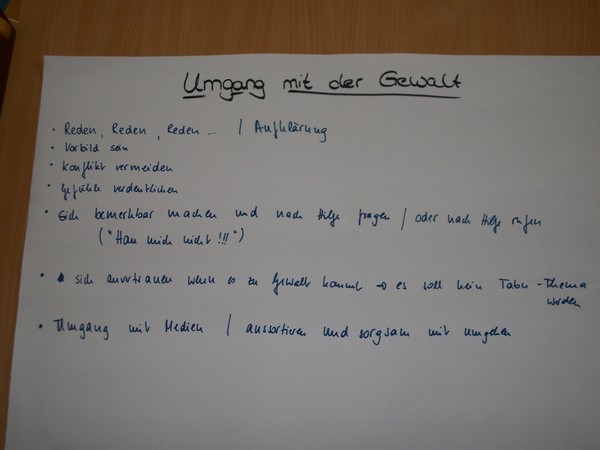 Umgang mit der Gewalt
• Reden, Reden, Reden ... / Aufklärung
• Vorbild sein
• Konflikt vermeiden
• Gefühle verdeutlichen
• Sich bemerkbar machen und nach Hilfe fragen / oder nach Hilfe rufen
("Hau mich nicht !!!")
• sich anvertrauen wenn es zu Gewalt kommt → es soll kein Tabu-Thema
werden
• Umgang mit Medien / aussortieren und sorgsam mit umgehen